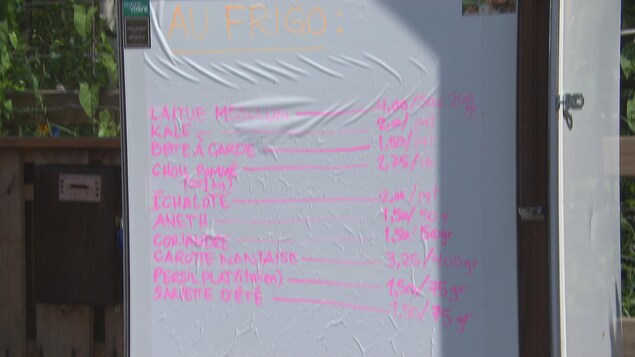 AU FRIGO:
LAITUE 4,00/
KALE 2,00/
BETTE À CARDE 1,50/
CHOU Pommé 2,75/
ÉCHALOTE 2,00/
ANETH 1,50/
CORIANDRE 1,50 50gr
CAROTTE NANTAISE 3,25/400gr
PERSIL PLAT (italien) 1,50/75gr
SARIETTE D'ÉTÉ 1,50/75gr